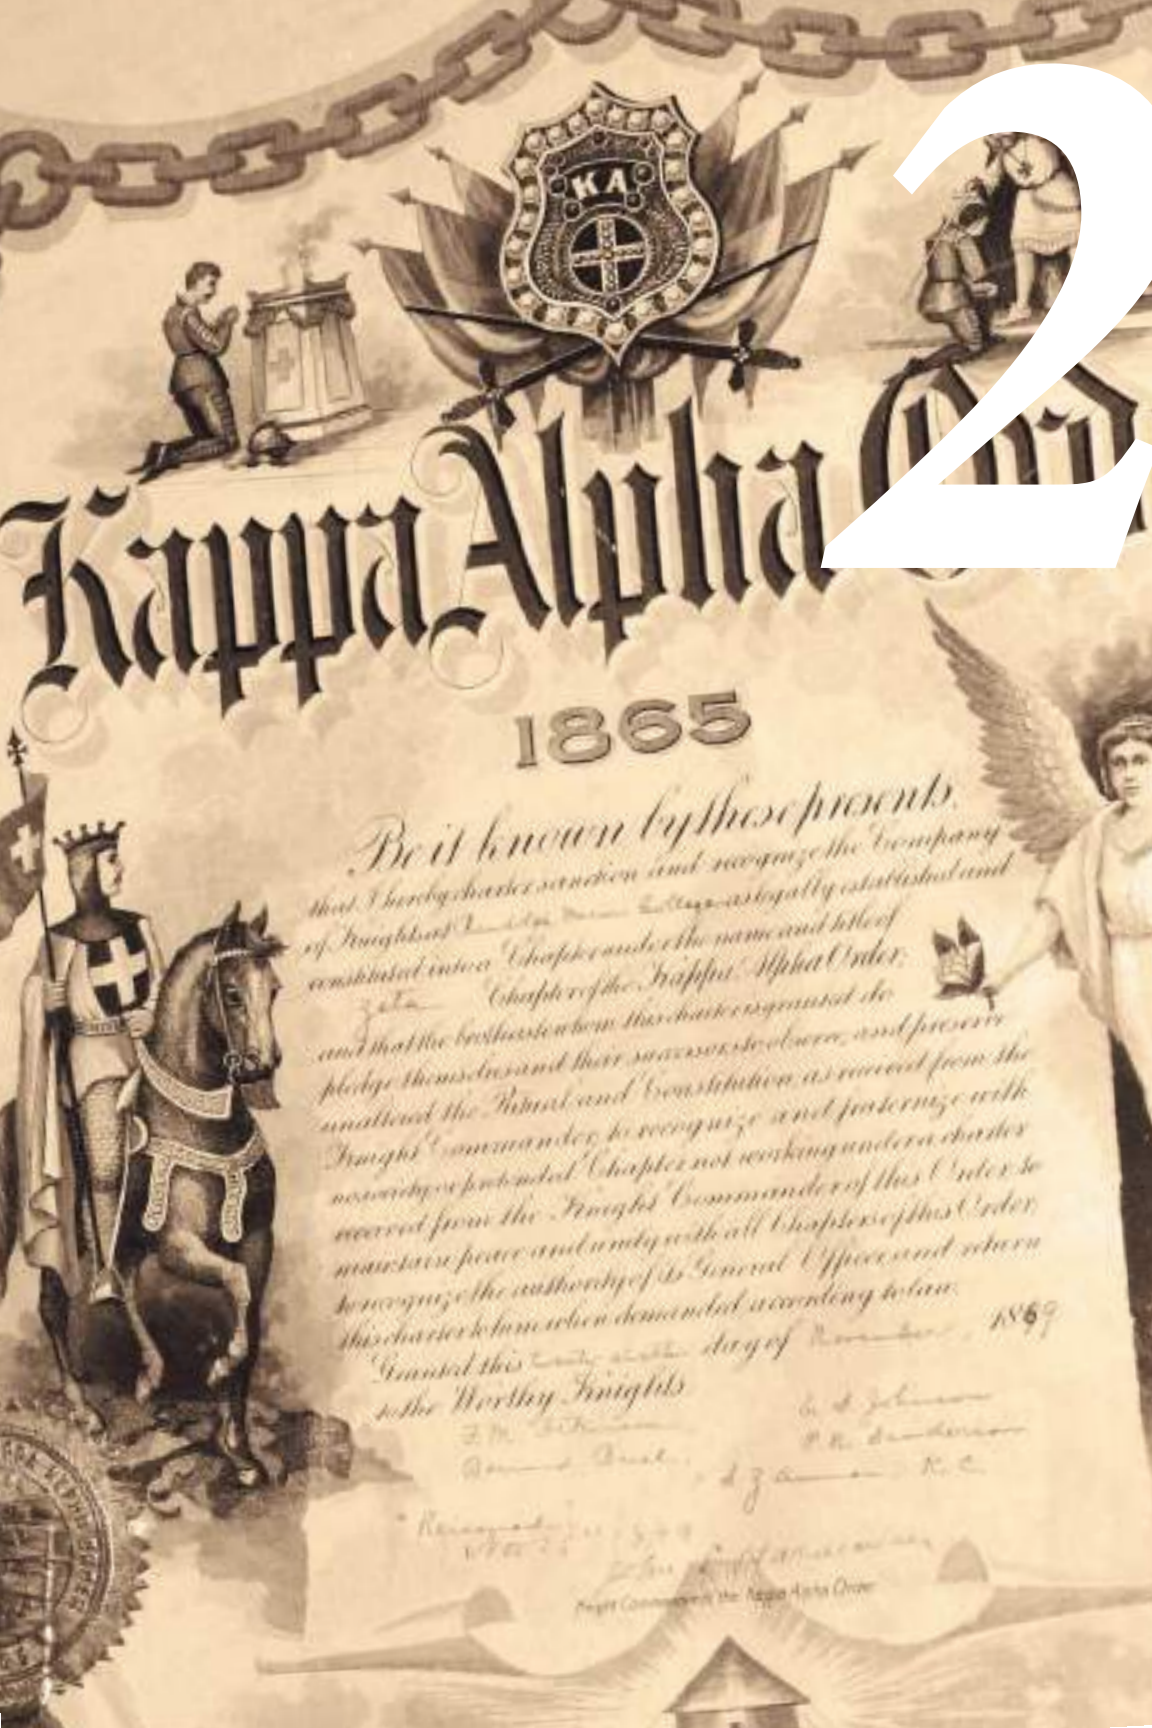 2
KA
Kappa Alpha Ord
1865
Be it known by these presents,
that I hereby charter sanction and recognize the Company
of Knights at College as legally established and
constituted into a Chapter under the name and title of
Zeta Chapter of the Kappa Alpha Order;
and that the brothers to whom this charter is granted do
pledge themselves and their successors to observe, and preserve
unaltered the Ritual and Constitution as received from the
Knight Commander, to recognize and fraternize with
no society or pretended Chapter not working under a charter
received from the Knight Commander of this Order to
maintain peace and unity with all Chapters of this Order,
to recognize the authority of its General Officer and return
this charter to him when demanded according to law.
Granted this day of November, 1869
to the Worthy Knights
S. Z. Ammen K. C.
Knight Commander of the Kappa Alpha Order